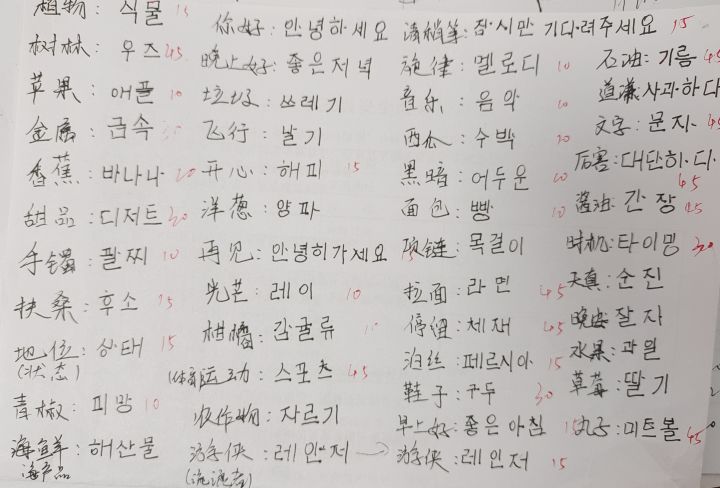 植物: 식물 15
树林: 우즈 45
苹果: 애플 10
金属: 금속
香蕉: 바나나 20
甜品: 디저트 30
手镯: 팔찌 10
扶桑: 후소 15
地位: 상태 15
(状态)
青椒: 피망 10
海鲜: 해산물
海产品
你好: 안녕하세요
晚上好: 좋은저녁
垃圾: 쓰레기
飞行: 날기
开心: 해피 15
洋葱: 양파
再见: 안녕히가세요
光芒: 레이 10
柑橘: 감귤류
(体育)运动: 스포츠 45
收作物: 자르기
游侠: 레인저 →
(流浪者)
请稍等: 잠시만 기다려주세요 15
旋律: 멜로디 10
音乐: 음악
西瓜: 수박
黑暗: 어두운
面包: 빵 10
项链: 목걸이
拉面: 라면 45
停留: 체재 45
泊丝: 페르시아 15
鞋子: 구두 30
早上好: 좋은아침 15
游侠: 레인저 15
石油: 기름 45
道谦 사과하다
文字: 문자 45
厉害: 대단히.다. 45
酱油: 간장 45
时机: 타이밍 30
天真: 순진
晚安 잘자
水果: 과일
草莓: 딸기
丸子: 미트볼 45